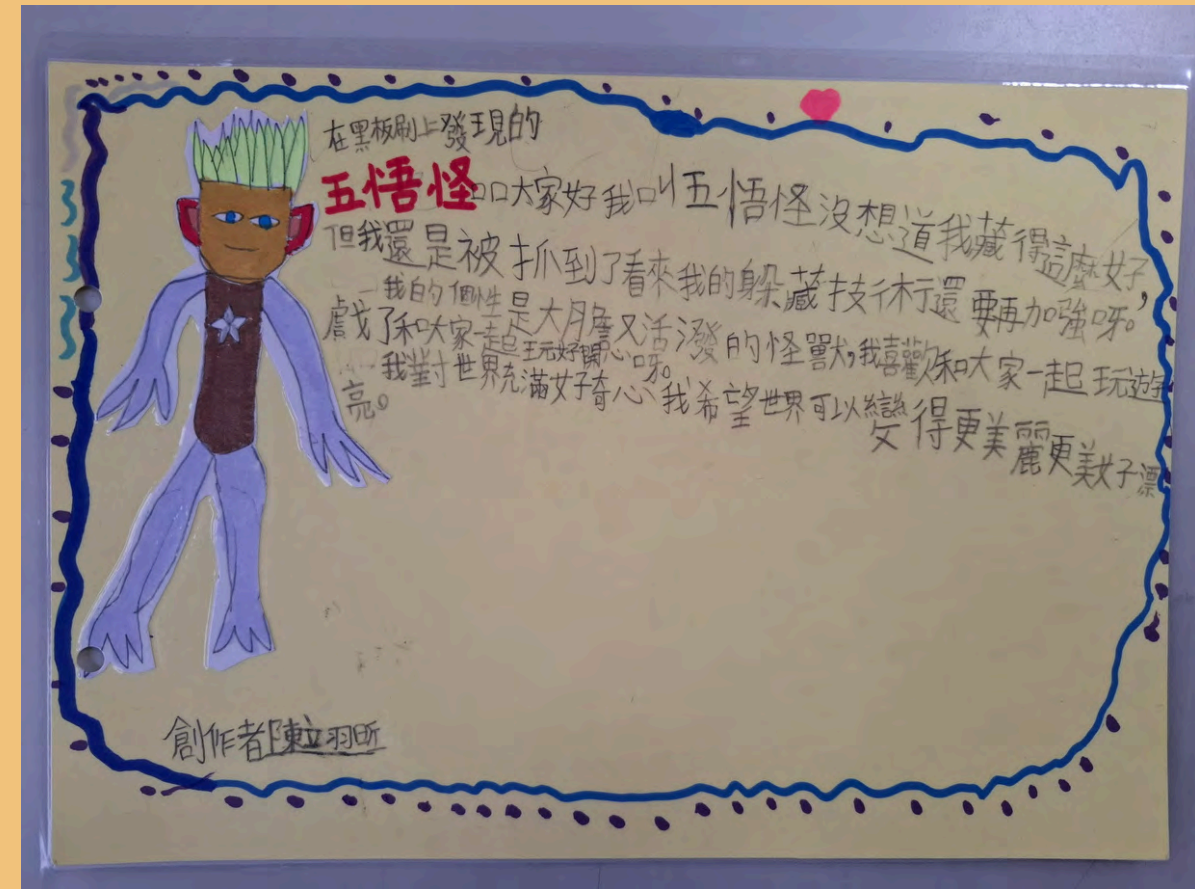 在黑板刷上發現的
五悟怪口口大家好我叫五悟怪沒想道我藏得這麼好,
但我還是被抓到了看來我的躲藏技術還要再加強呀。
我的個性是大膽又活潑的怪獸,我喜歡和大家一起玩遊
戲了和大家一起玩好開心呀。
我對世界充滿好奇心我希望世界可以變得更美麗更美好漂
亮。
創作者陳立羽昕